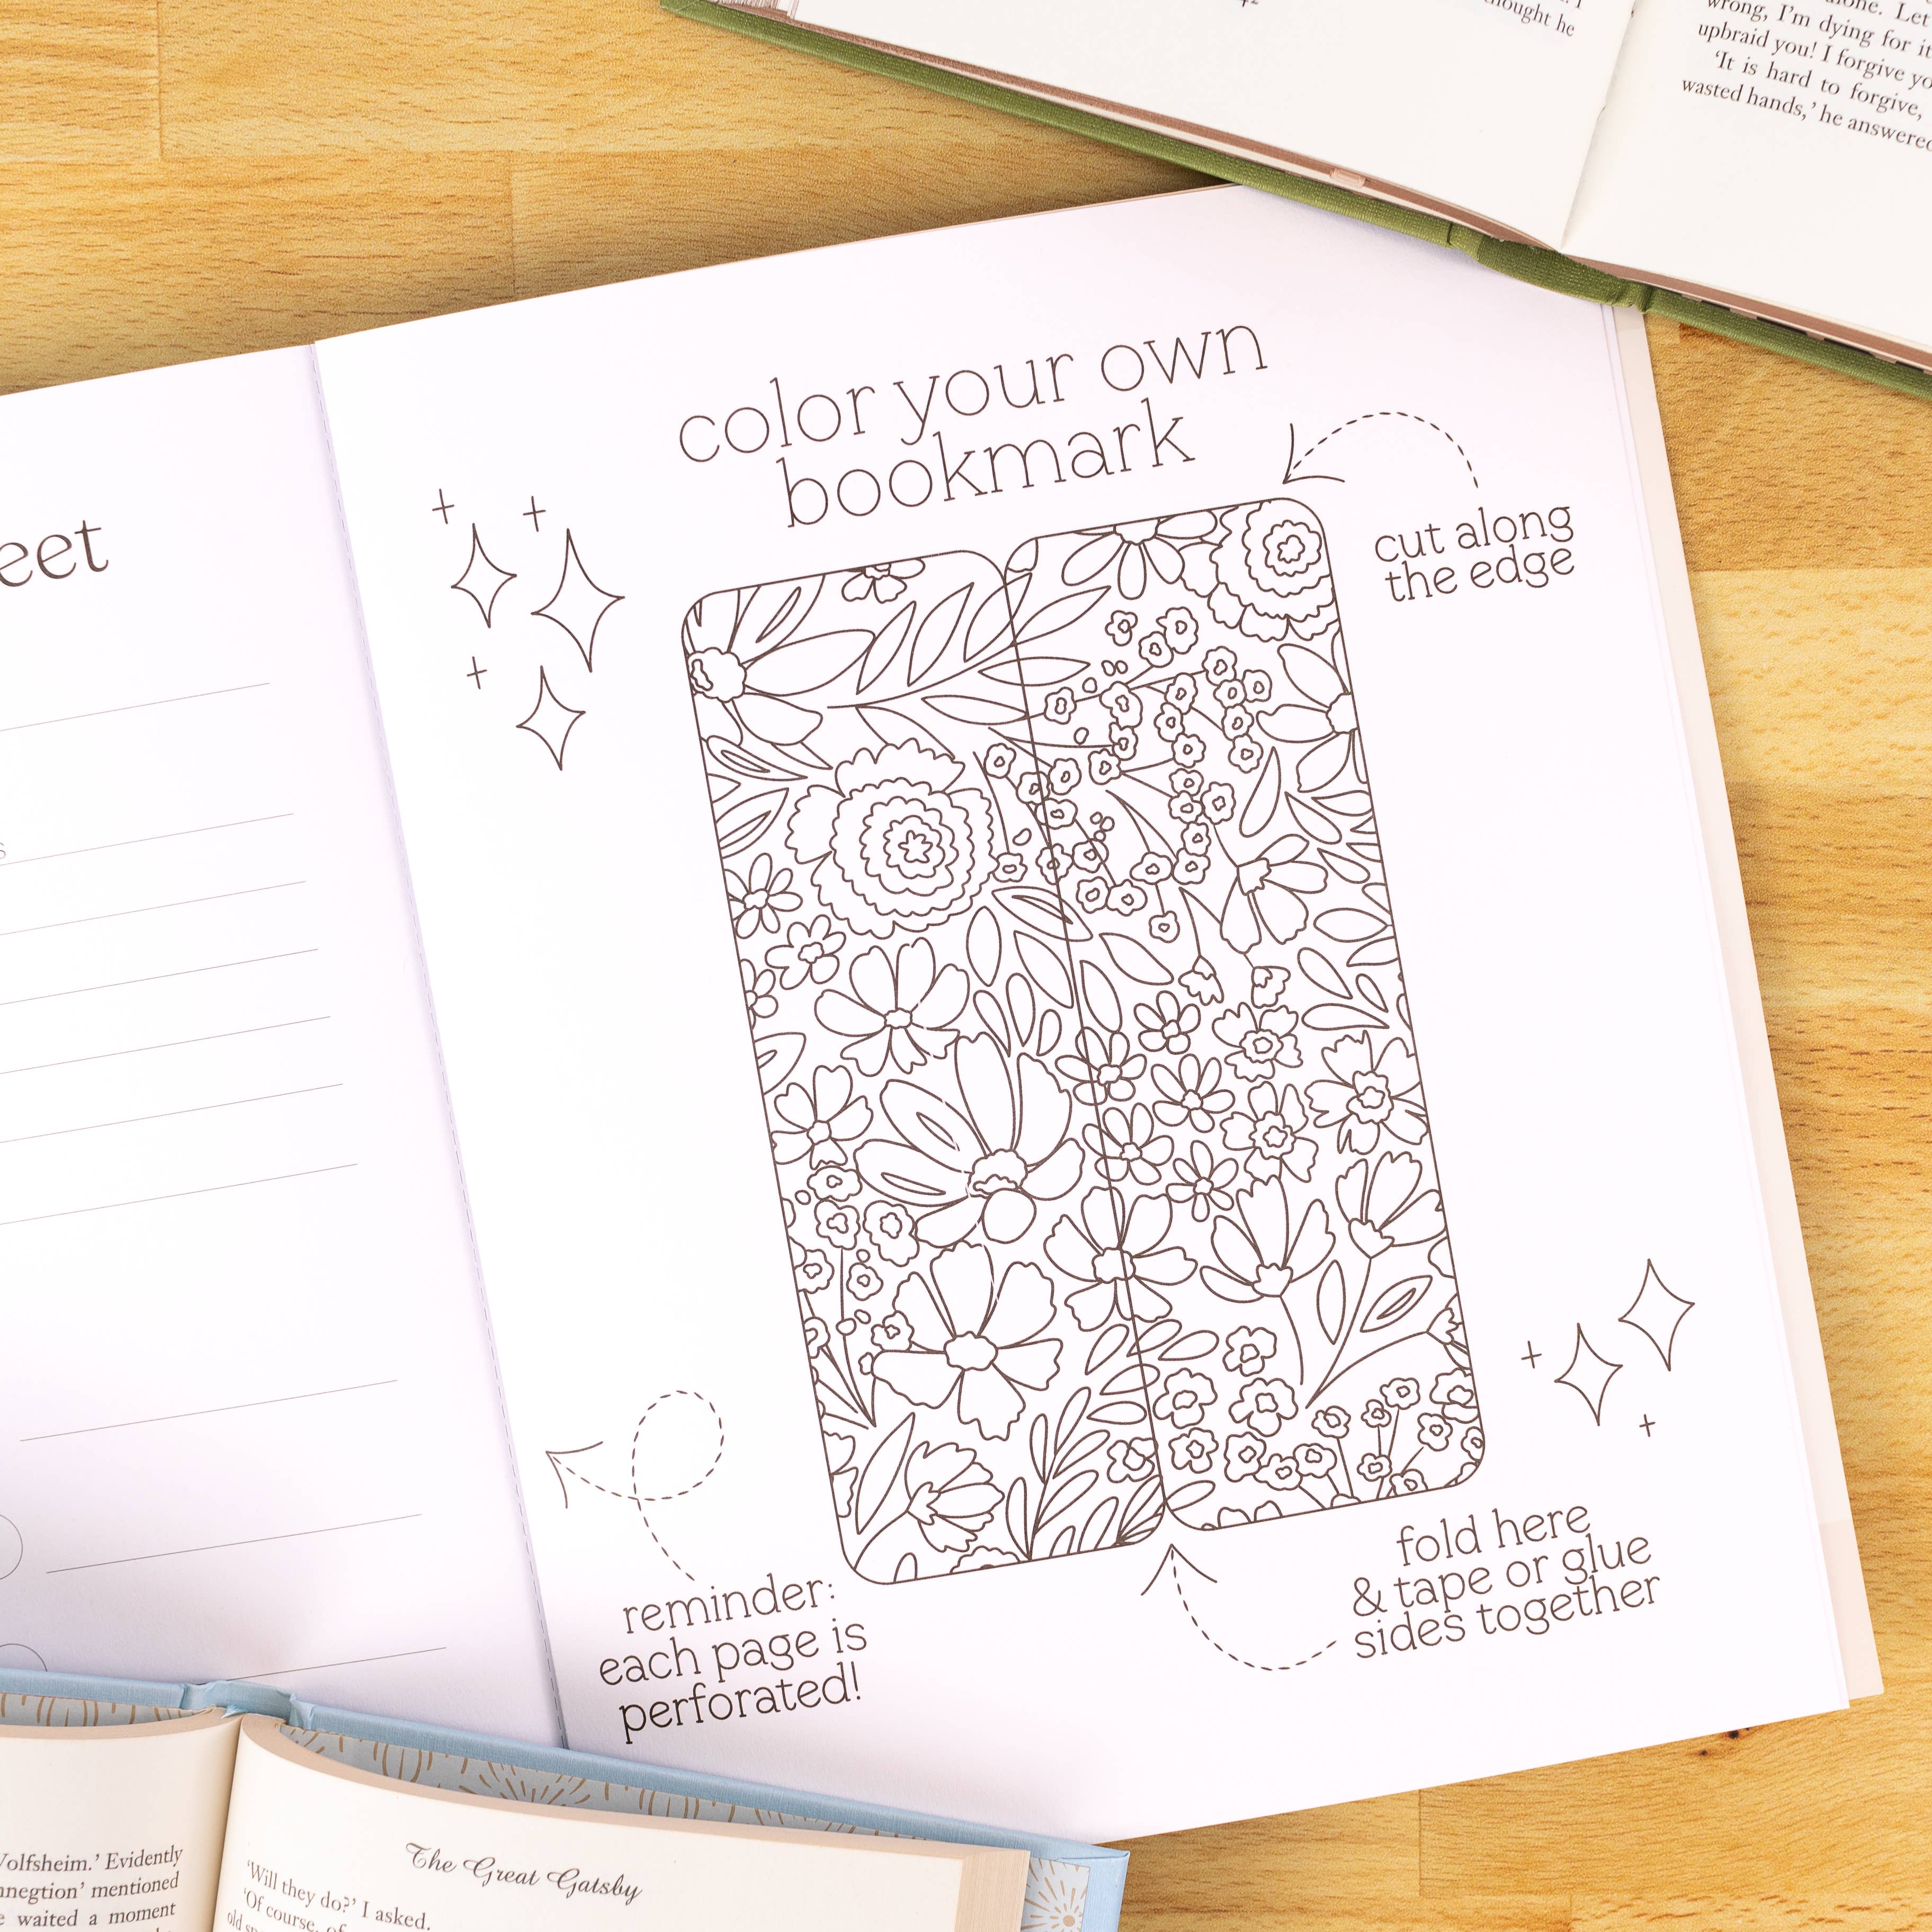 thought he
wrong, I'm dying for it
upbraid you! I forgive
'It is hard to forgive,
wasted hands,' he answered
color your own
bookmark
cut along
the edge
fold here
& tape or glue
sides together
reminder:
each page is
perforated!
Evidently
mentioned
waited a moment
The Great Gatsby
'Will they do?' I asked.
'Of course, of
old